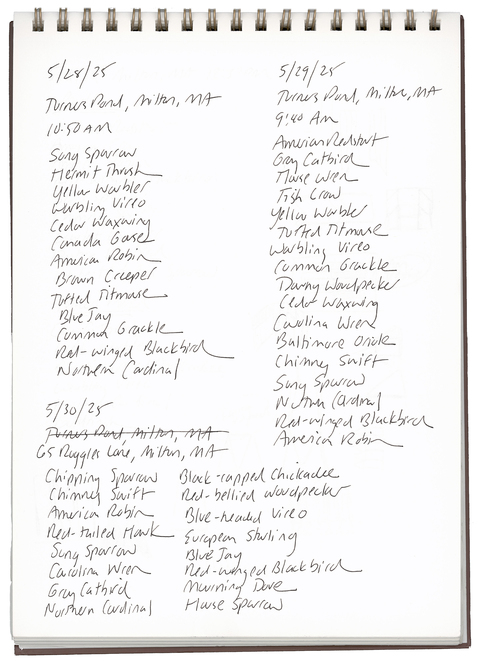 5/28/25
Turners Pond, Milton, MA
10:50 AM
Song Sparrow
Hermit Thrush
Yellow Warbler
Warbling Vireo
Cedar Waxwing
Canada Goose
American Robin
Brown Creeper
Tufted Titmouse
Blue Jay
Common Grackle
Red-winged Blackbird
Northern Cardinal
5/29/25
Turners Pond, Milton, MA
9:40 AM
American Redstart
Gray Catbird
House Wren
Fish Crow
Yellow Warbler
Tufted Titmouse
Warbling Vireo
Common Grackle
Downy Woodpecker
Cedar Waxwing
Carolina Wren
Baltimore Oriole
Chimney Swift
Song Sparrow
Northern Cardinal
Red-winged Blackbird
American Robin
5/30/25
Turners Pond, Milton, MA
65 Ruggles Lane, Milton, MA
Chipping Sparrow
Chimney Swift
American Robin
Red-tailed Hawk
Song Sparrow
Carolina Wren
Gray Catbird
Northern Cardinal
Black-capped Chickadee
Red-bellied Woodpecker
Blue-headed Vireo
European Starling
Blue Jay
Red-winged Blackbird
Mourning Dove
House Sparrow